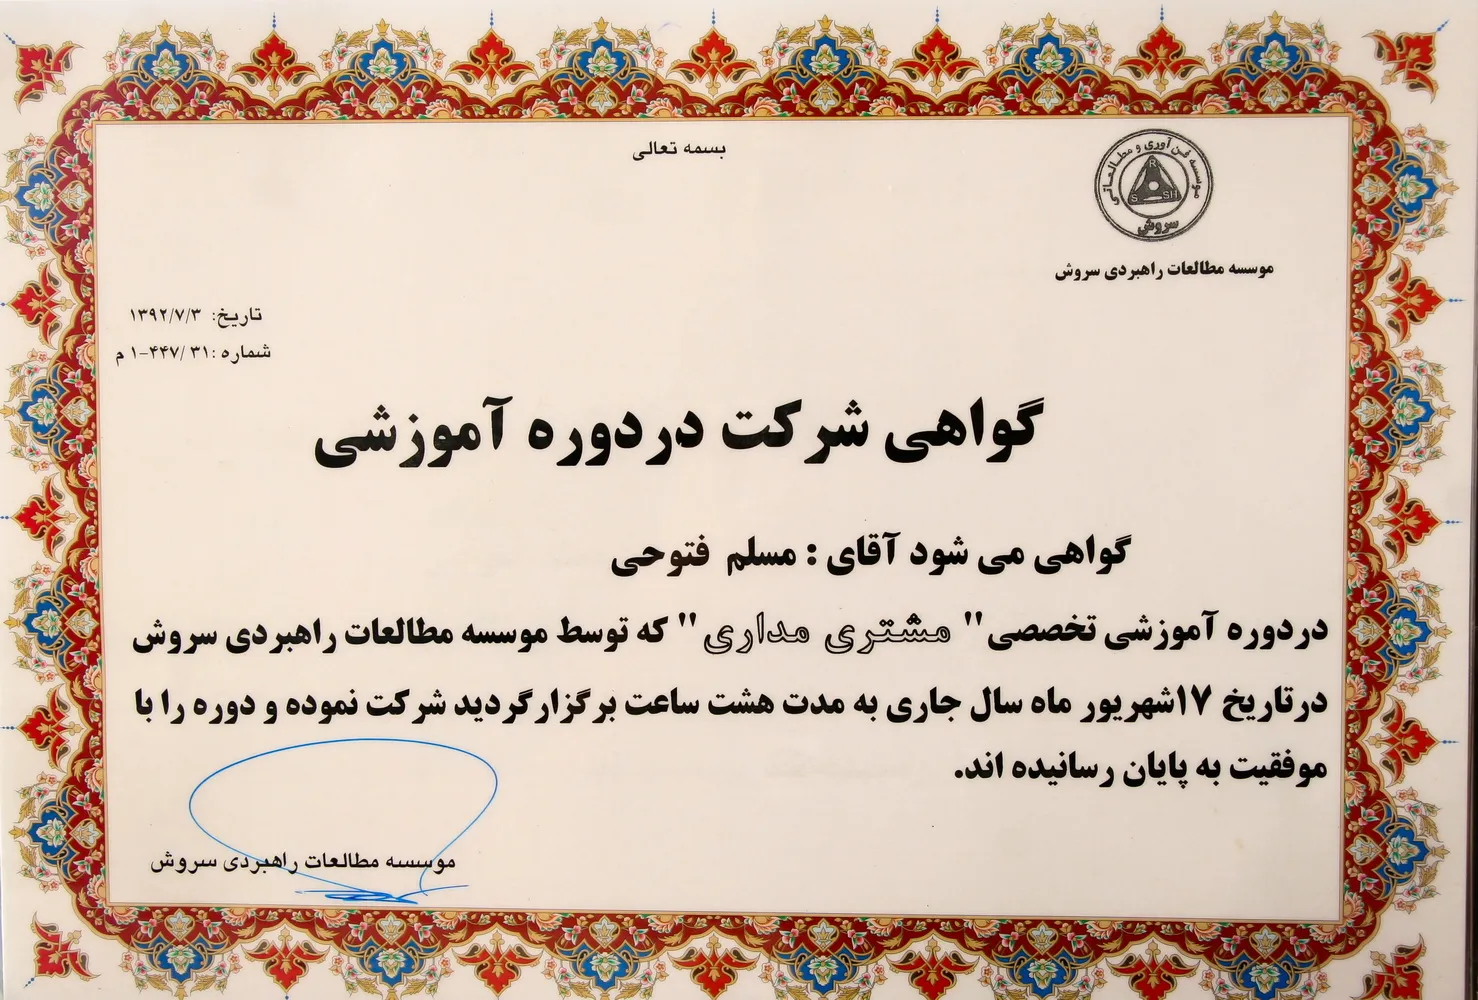 بسمه تعالی
موسسه فن آوری و مطالعاتی
R
S SH
سروش
موسسه مطالعات راهبردی سروش
تاریخ: ۱۳۹۲/۷/۳
شماره :۳۱ /۴۴۷-۱ م
گواهی شرکت دردوره آموزشی
گواهی می شود آقای : مسلم فتوحی
دردوره آموزشی تخصصی" مشتری مداری" که توسط موسسه مطالعات راهبردی سروش
درتاریخ ۱۷شهریور ماه سال جاری به مدت هشت ساعت برگزارگردید شرکت نموده و دوره را با
موفقیت به پایان رسانیده اند.
موسسه مطالعات راهبردی سروش